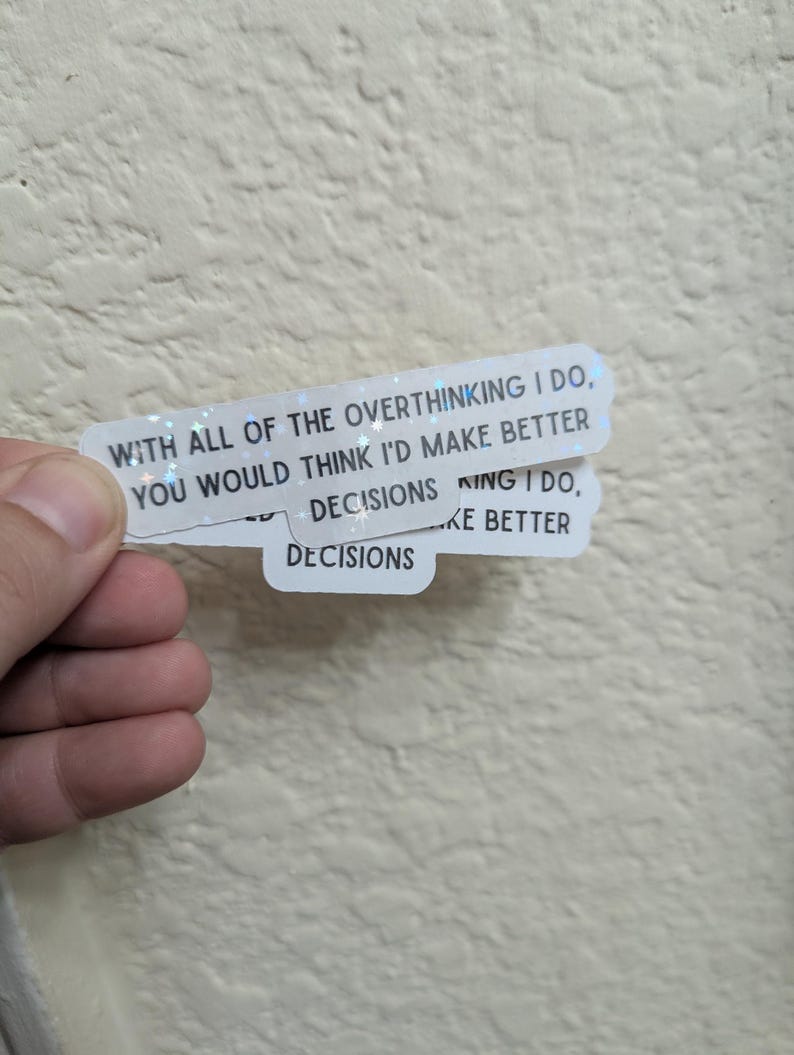 WITH ALL OF THE OVERTHINKING I DO,
YOU WOULD THINK I'D MAKE BETTER
DECISIONS
KING I DO,
KE BETTER
DECISIONS